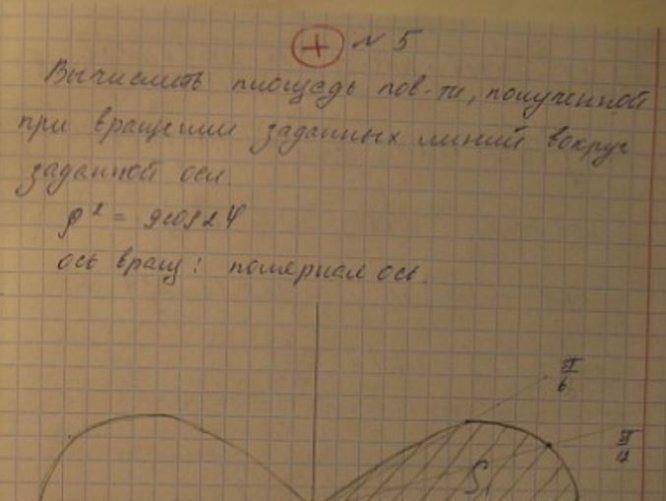 + № 5
Вычислить площадь пов-ти, полученной
при вращении заданных линий вокруг
заданной оси.
ρ² = 9cos2φ
ось вращ: полярная ось.
π/6
S₁